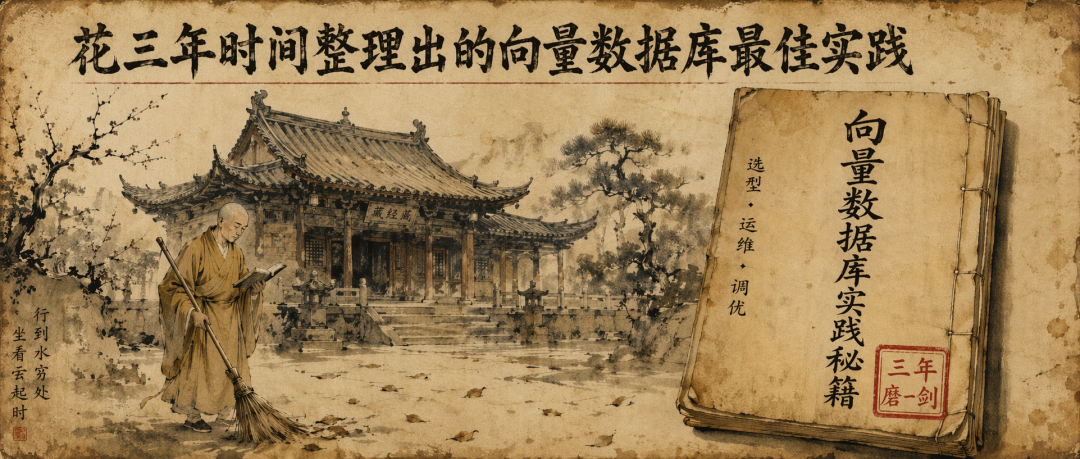 花三年时间整理出的向量数据库最佳实践
藏经藏
行到水穷处
坐看云起时
向量数据库实践秘籍
选型・运维・调优
三年
磨一剑